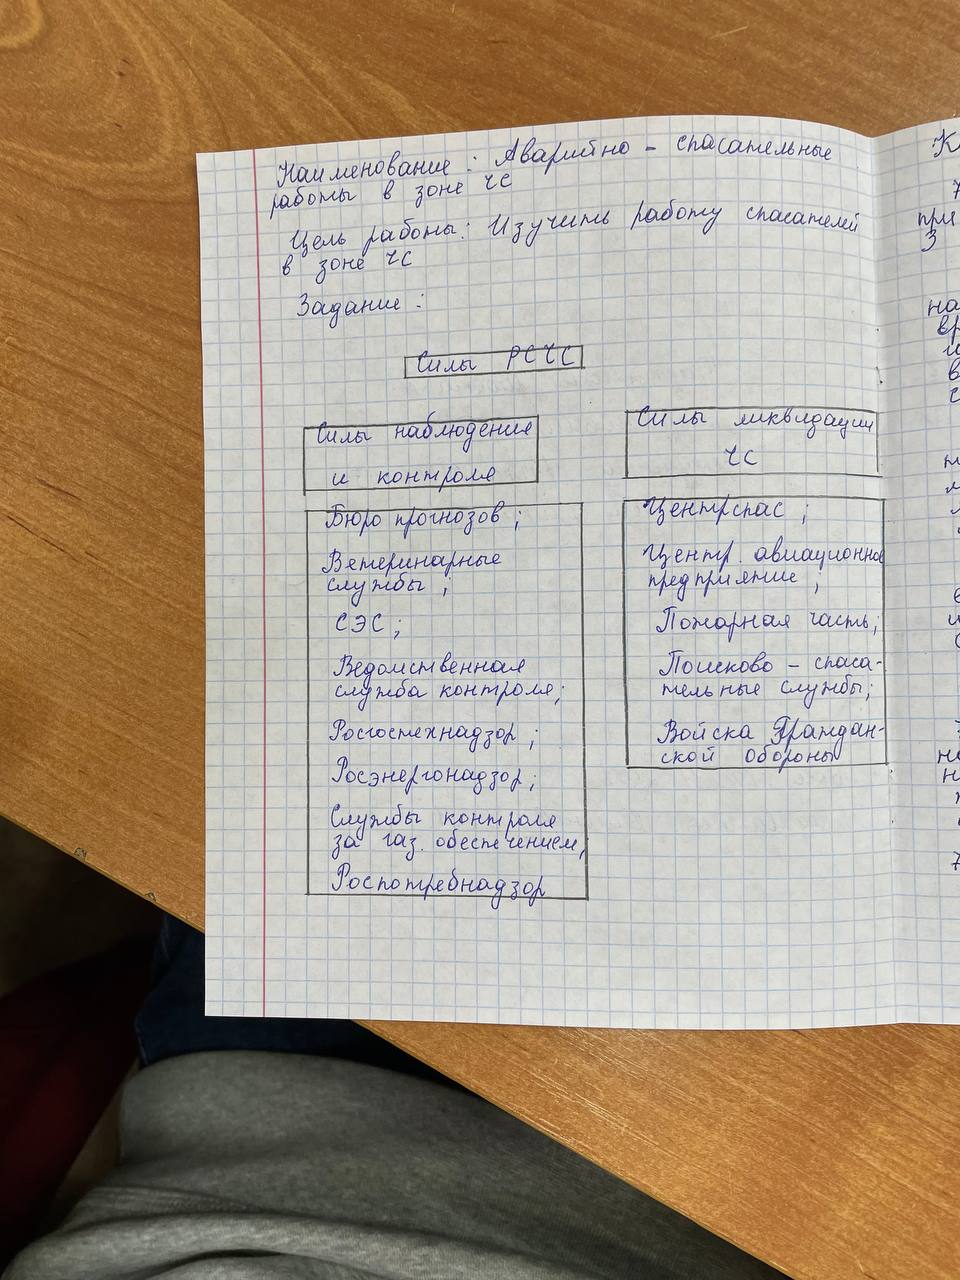 Наименование: Аварийно - спасательные
работы в зоне ЧС
Цель работы: Изучить работу спасателей
в зоне ЧС
Задание:
Силы РСЧС
Силы наблюдение
и контроля
Бюро прогнозов;
Ветеринарные
службы;
СЭС;
Ведомственная
служба контроля;
Росгостехнадзор;
Росэнергонадзор;
Службы контроля
за газ. обеспечением,
Роспотребнадзор
Силы ликвидации
ЧС
Центрспас;
Центр. авиационное
предприятие;
Пожарная часть;
Поисково - спаса-
тельные службы;
Войска Граждан-
ской обороны
при
3
на
вр
в